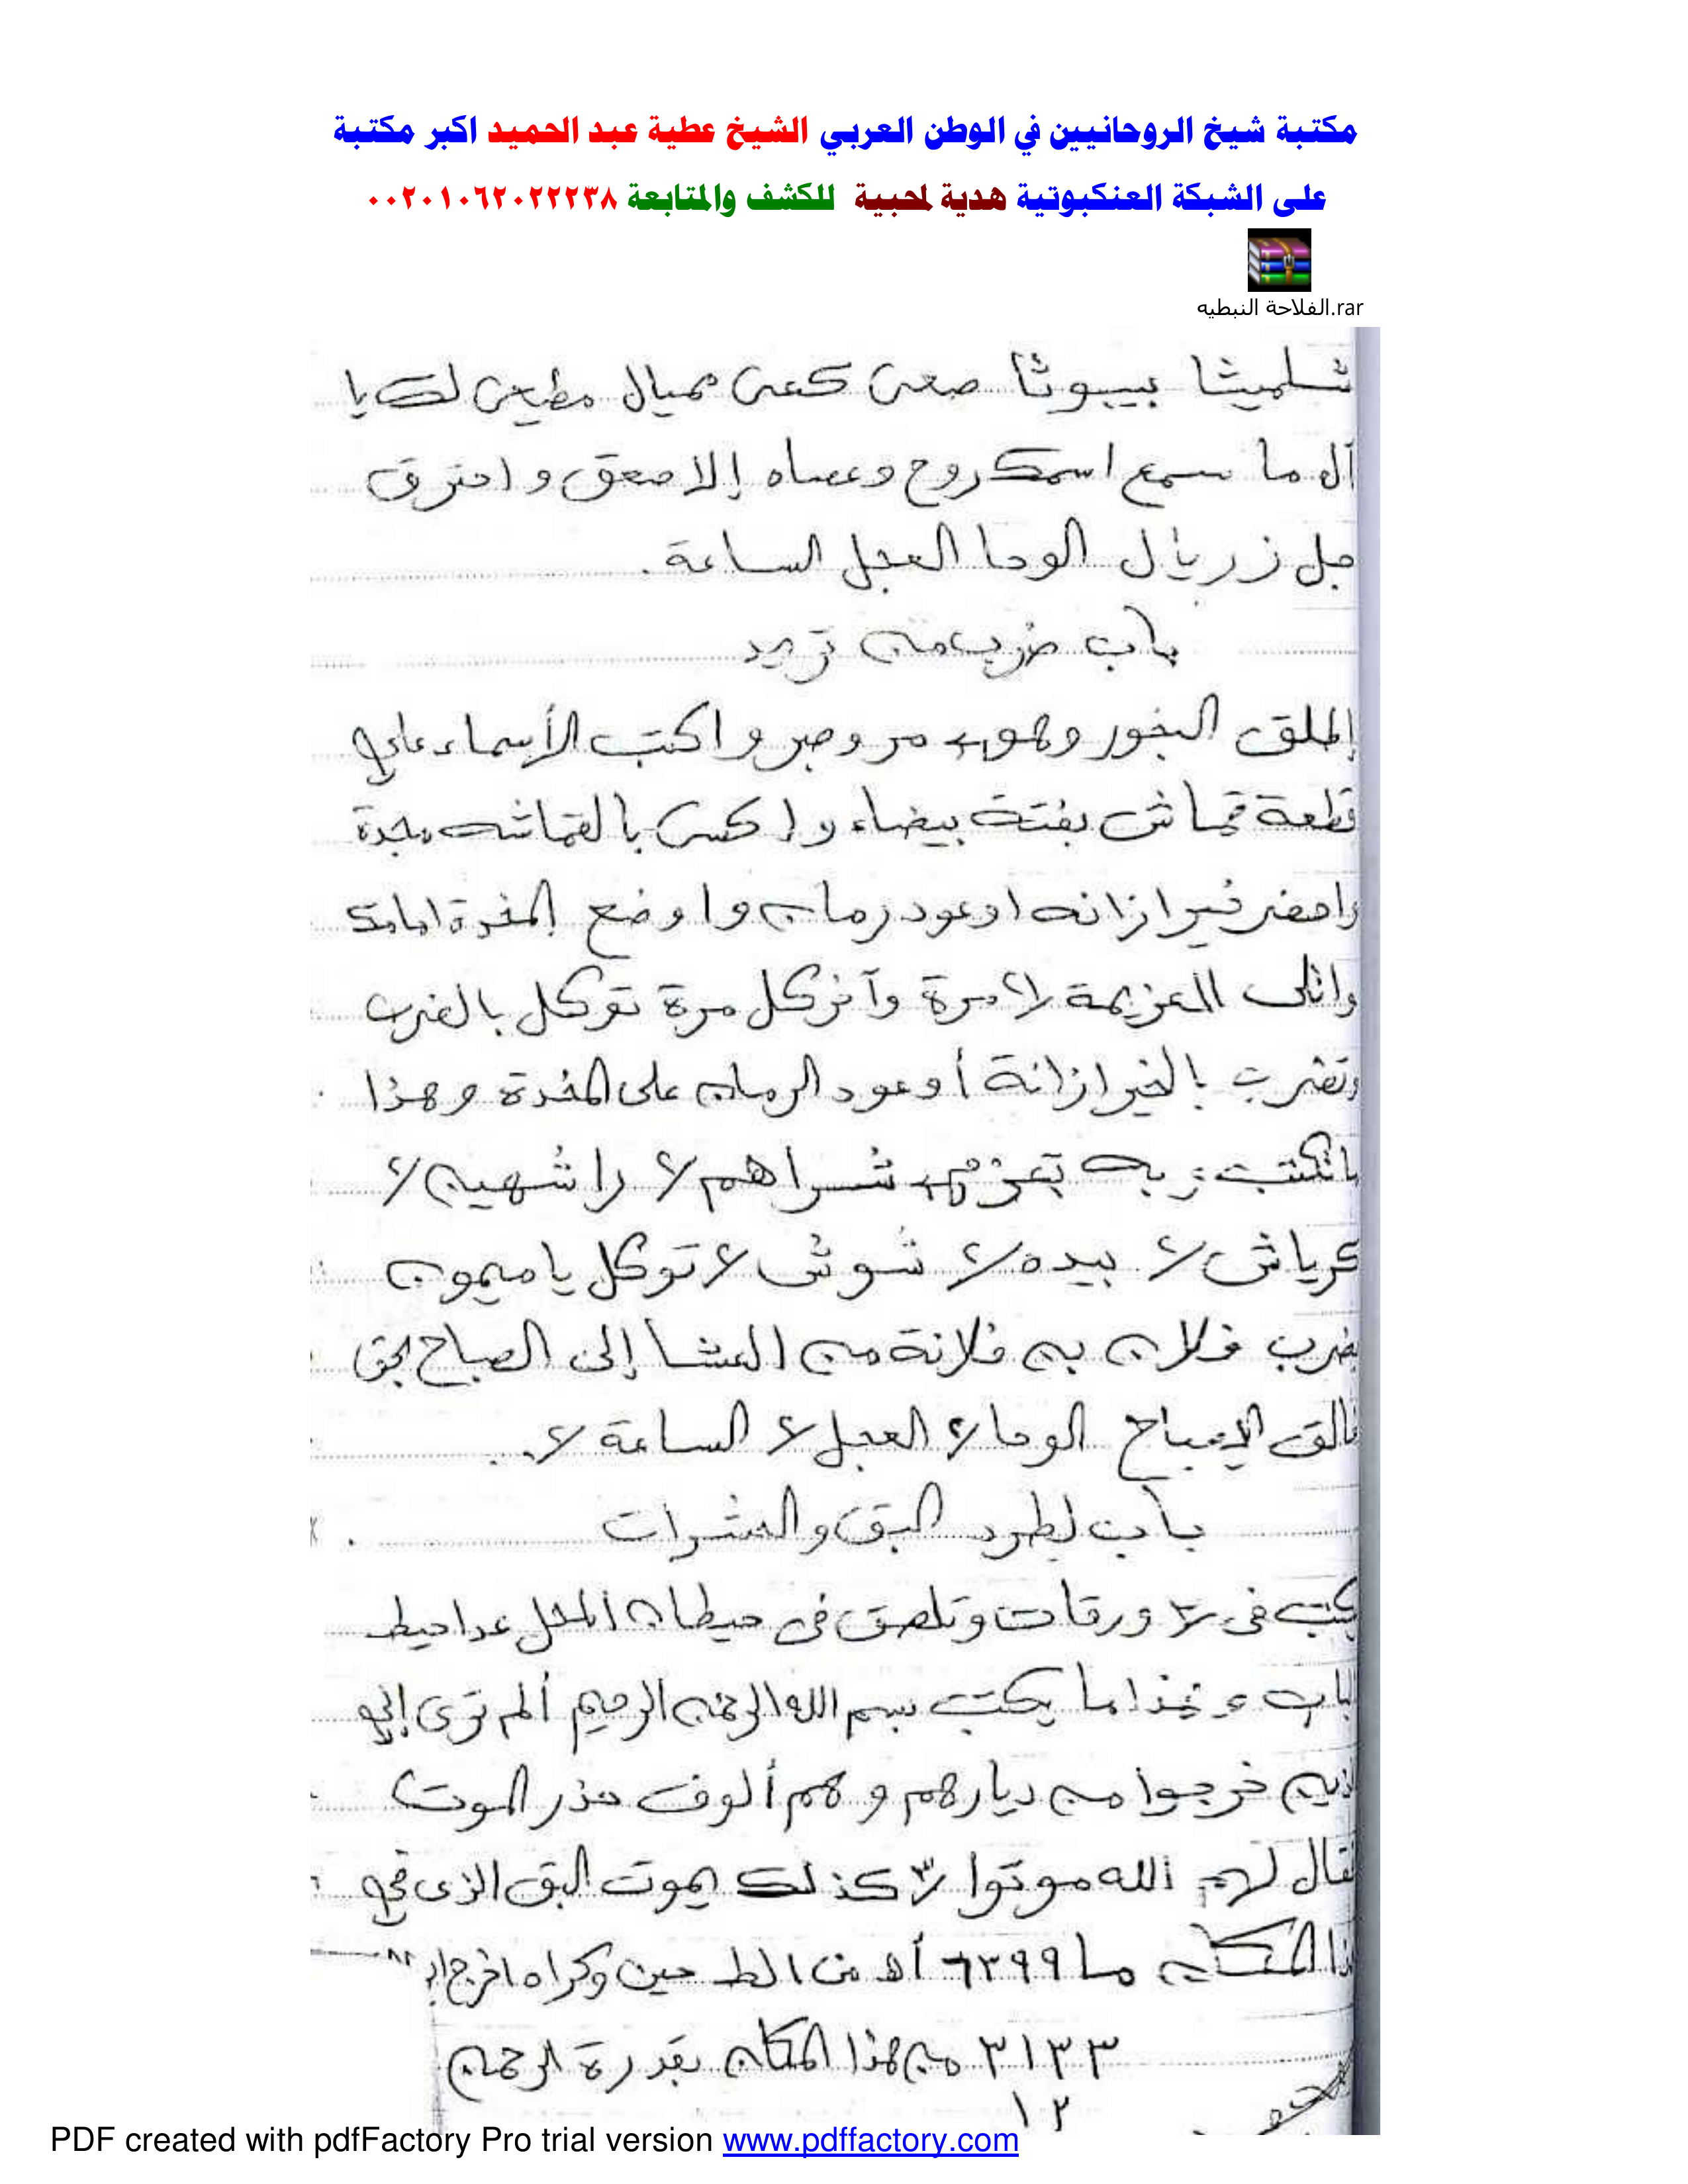 مكتبة شيخ الروحانيين في الوطن العربي الشيخ عطية عبد الحميد اكبر مكتبة
على الشبكة العنكبوتية هدية لمحبية للكشف والمتابعة ٠٠٢٠١٠٦٢٠٢٢٢٣٨
الفلاحة النبطيه.rar
شلميثا بيبوثا صعى كعى مميال مطيعى لك يا
آل ما سمع اسمك روح وعصاه إلا صعق واحترق
جل زريال الوحا العجل الساعة.
باب ضرب من تريد
إطلق البخور وهو مر وصبر واكتب الأسماء على
قطعة قماش بفتة بيضاء واكسى بالقماشه مخدة
واحضر خيرازانه اوعود رمان واوضع المخدة امامك
واتلى العزيمة ٧ مرة وآخر كل مرة توكل بالضرب
وتضرب بالخيرازانة أوعود الرمان على المخدة وهذا
ماتكتب وبه تعزم شراهم ٧ راشهين ٧
كرياش ٧ بيده ٧ شوش ٧ توكل يا ميمون
بضرب فلان بن فلانة من العشا إلى الصباح بحق
فالق الإصباح الوحا ٧ العجل ٧ الساعة ٧.
باب لطرد البق والحشرات
يكتب فى ٣ ورقات وتلصق فى حيطان المحل عدا حيط
الباب وهذا ما يكتب بسم الله الرحمن الرحيم ألم ترى إلى
الذين خرجوا من ديارهم وهم ألوف حذر الموت
فقال لهم الله موتوا ٣ كذلك يموت البق الذى فى
هذا المكان ما ٦٣٩٩ أه من الط حين وكراه اخرج
٣١٣٣ من هذا المكان بقدرة الرحمن
١٢
PDF created with pdfFactory Pro trial version www.pdffactory.com